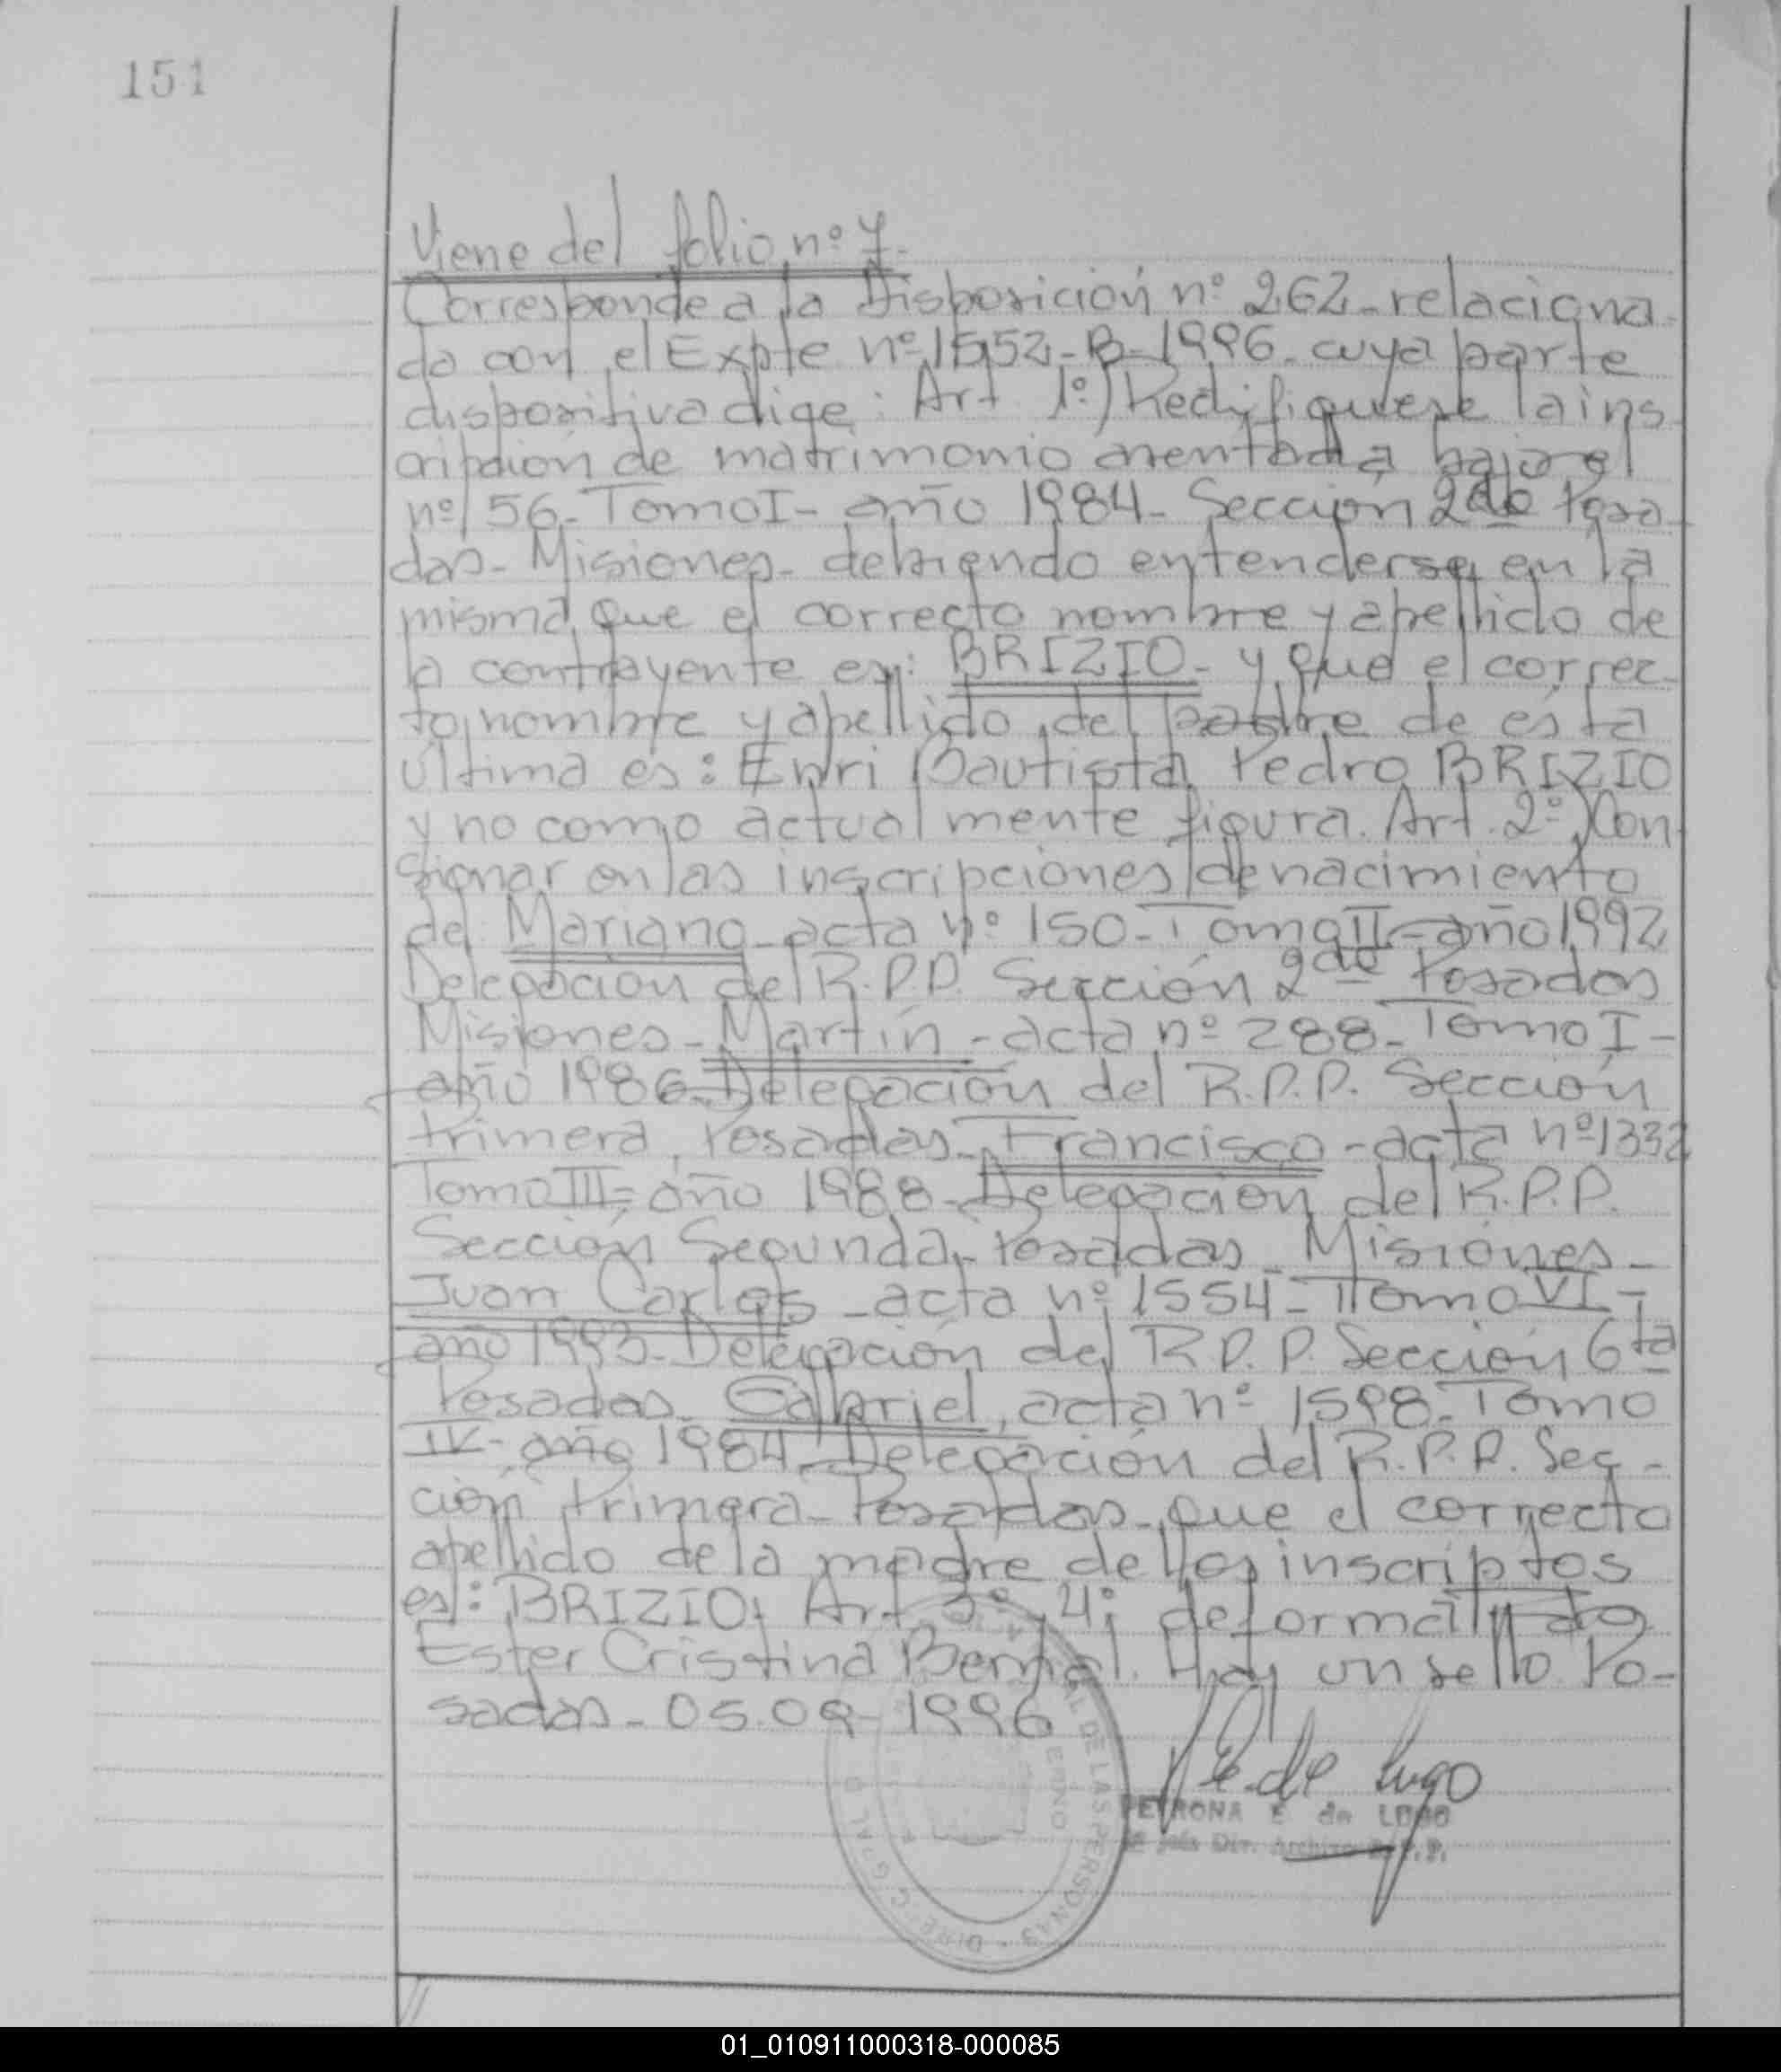 151
Viene del folio nº 7.
Corresponde a la Disposición nº 262 - relaciona-
da con el Expte nº 1552 - B - 1996 - cuya parte
dispositiva dice: Art 1º) Rectifíquese la ins-
cripción de matrimonio asentada bajo el
nº 56 - Tomo I - año 1984 - Sección 2da Posa-
das - Misiones - debiendo entenderse en la
misma que el correcto nombre y apellido de
la contrayente es: BRIZIO - y que el correc-
to nombre y apellido del padre de ésta
última es: Enri Bautista Pedro BRIZIO
y no como actualmente figura. Art. 2º) Con-
signar en las inscripciones de nacimiento
de: Mariano - acta nº 150 - Tomo II - año 1992
Delegación del R.P.P. Sección 2da Posadas
Misiones - Martín - acta nº 288 - Tomo I -
año 1986 - Delegación del R.P.P. Sección
Primera, Posadas - Francisco - acta nº 1332
Tomo III - año 1988 - Delegación del R.P.P.
Sección Segunda - Posadas - Misiones -
Juan Carlos - acta nº 1554 - Tomo VI -
año 1993 - Delegación del R.P.P. Sección 6ta
Posadas - Gabriel, acta nº 1598 - Tomo
IV - año 1984 - Delegación del R.P.P. Sec-
ción Primera - Posadas - que el correcto
apellido de la madre de los inscriptos
es: BRIZIO. Art 3º, 4º; de forma
Ester Cristina Bernal. Hay un sello Po-
sadas - 05.09 - 1996
P E. de Lugo
PETRONA E de LUGO
Dir. Archivo R.P.P.
DE LAS PERSONAS
01_010911000318-000085